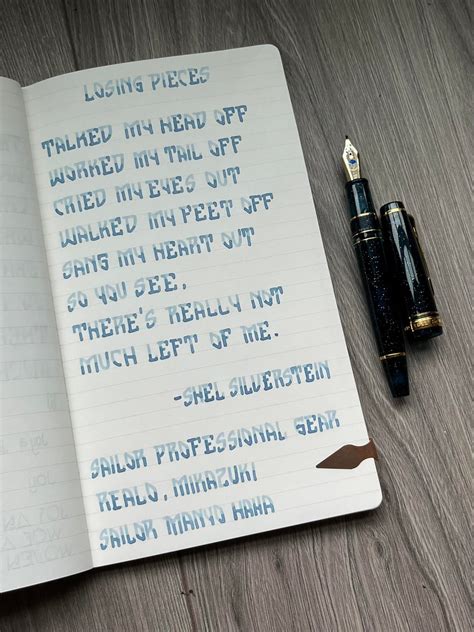 LOSING PIECES
TALKED MY HEAD OFF
WORKED MY TAIL OFF
CRIED MY EYES OUT
WALKED MY FEET OFF
SANG MY HEART OUT
SO YOU SEE,
THERE'S REALLY NOT
MUCH LEFT OF ME.
-SHEL SILVERSTEIN
SAILOR PROFESSIONAL GEAR
REALO, MIKAZUKI
SAILOR MANYO HAHA